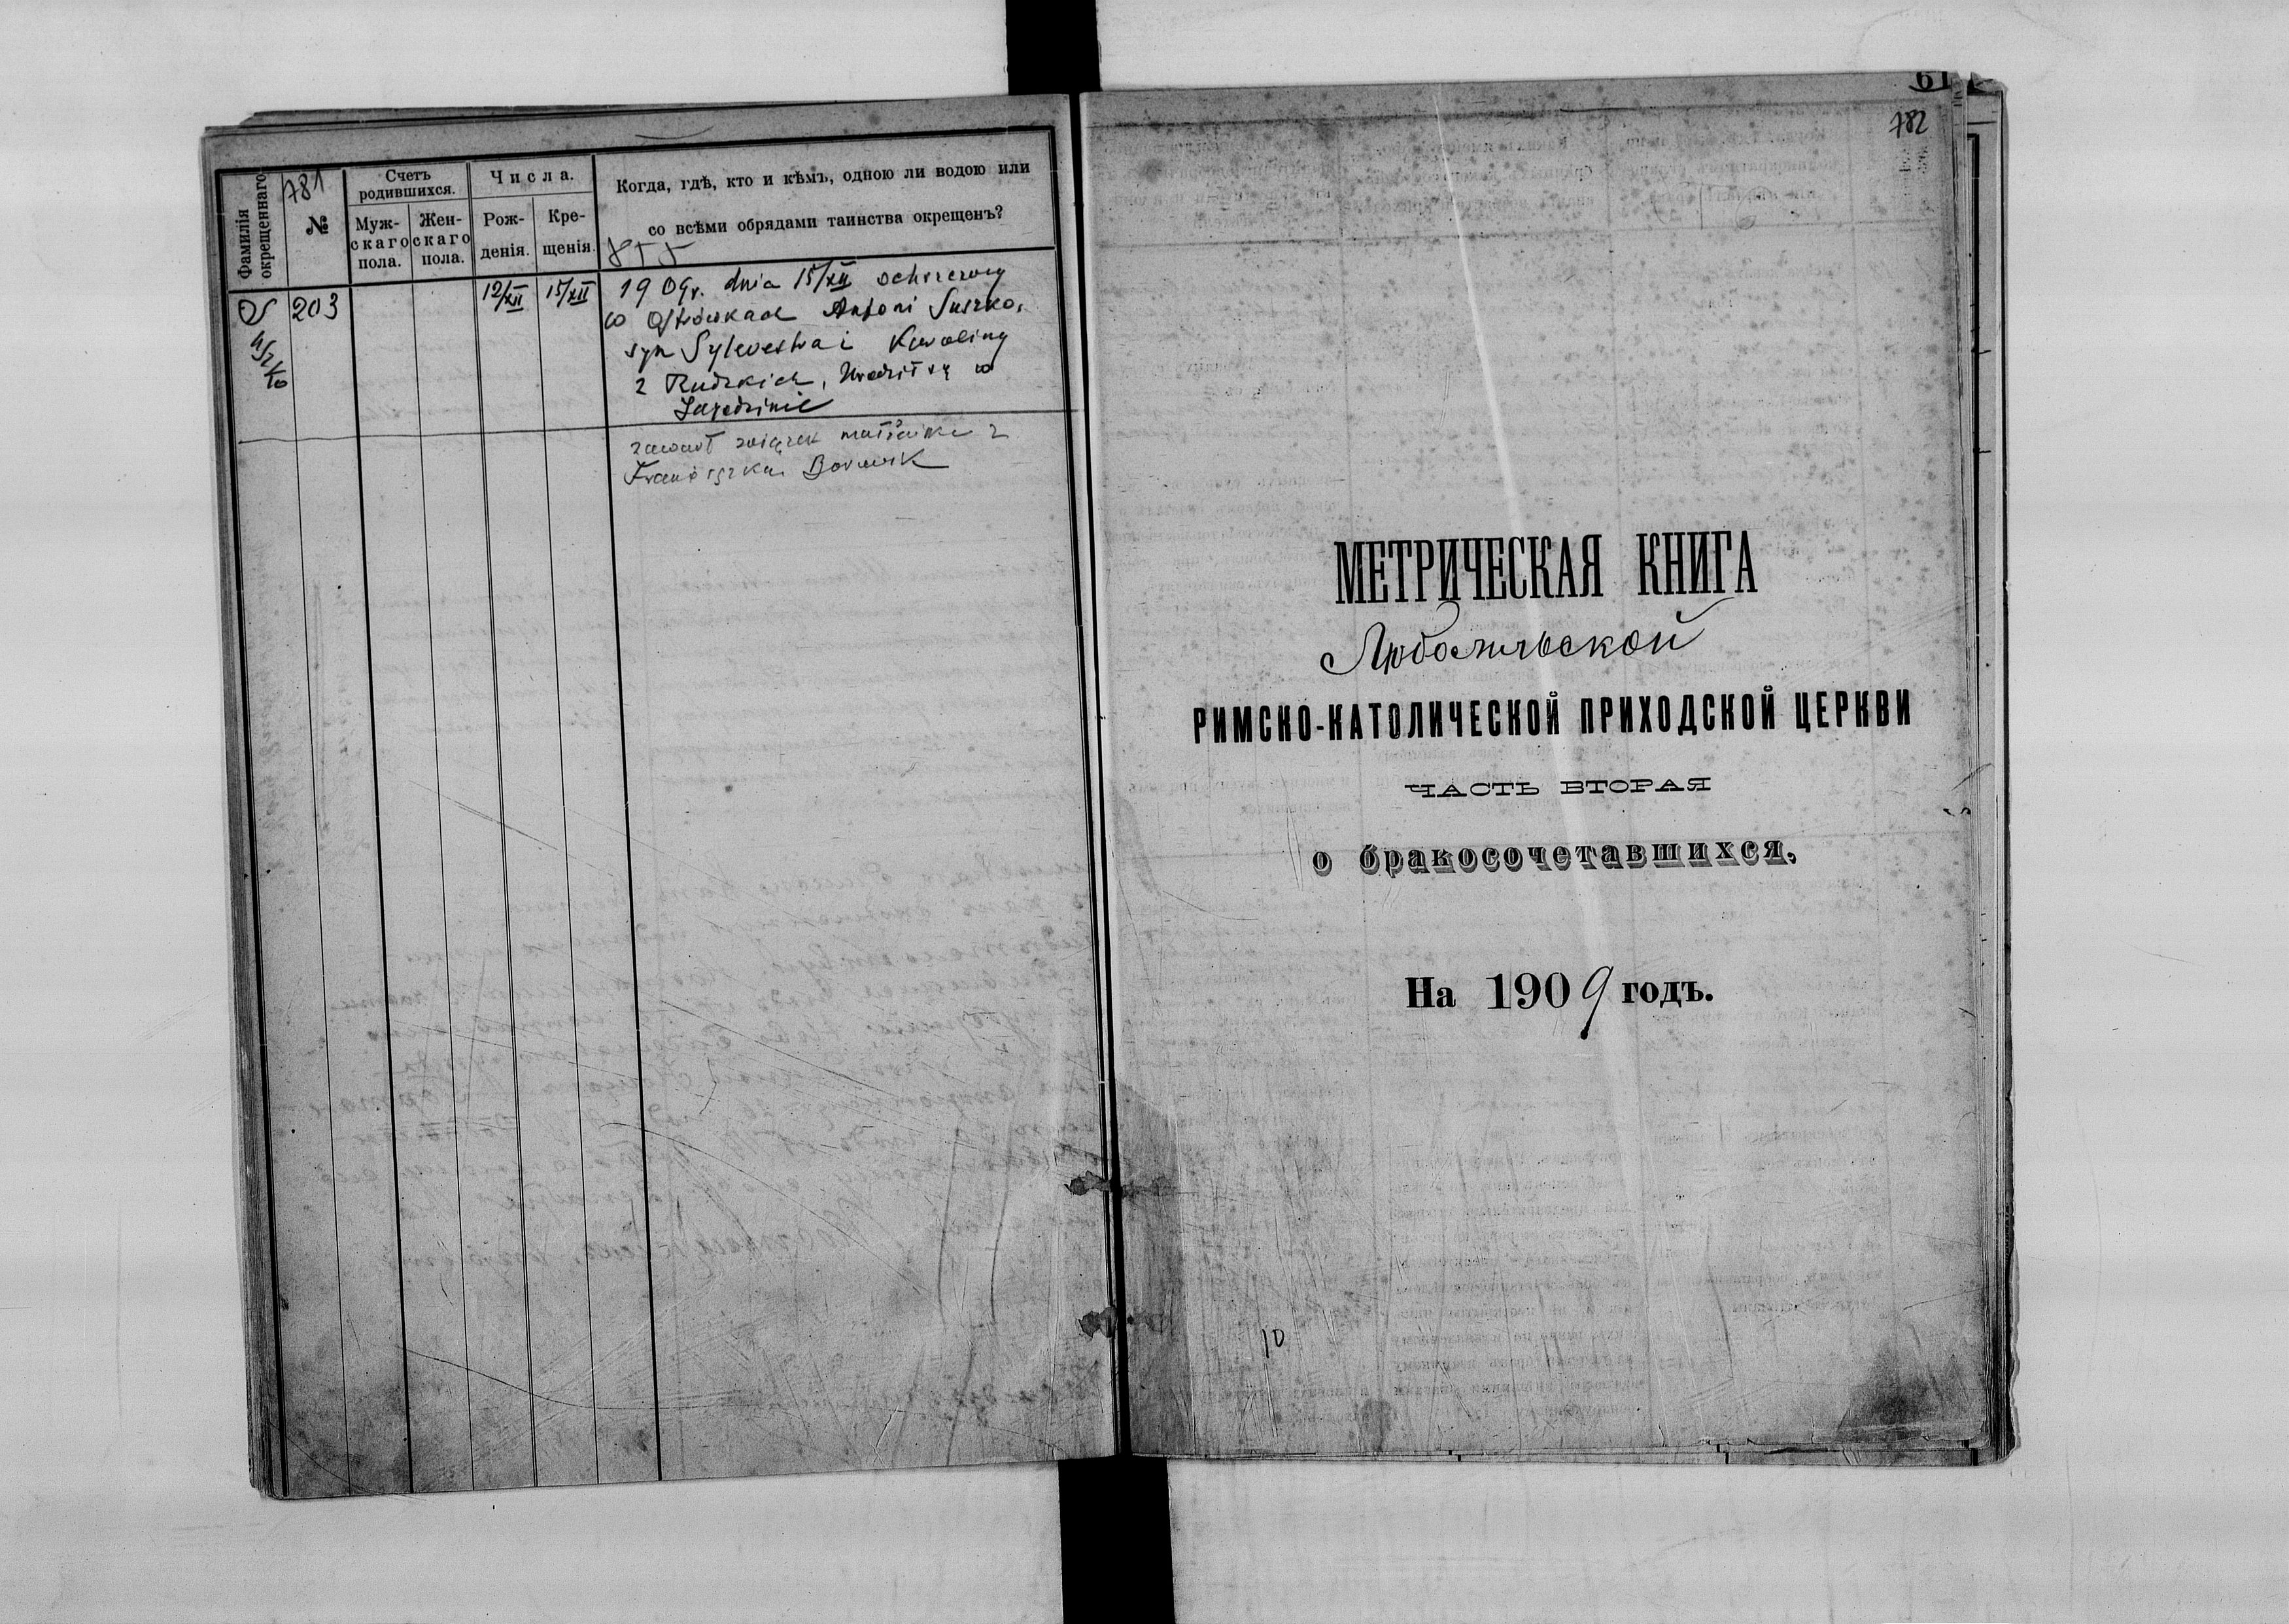 781
Фамилія окрещеннаго.
№
Счетъ родившихся.
Муж-скаго пола.
Жен-скаго пола.
Числа.
Рож-денія.
Кре-щенія.
Когда, гдѣ, кто и кѣмъ, одною ли водою или
со всѣми обрядами таинства окрещенъ?
Suszko
203
12/XII
15/XII
1909r. dnia 15/XII ochrzczony
w Ostrówkach Antoni Suszko,
syn Sylwestra i Karoliny
z Rudzkich, Urodził się w
zawarł związek małżeński z
Franciszką Borowik
61
782
МЕТРИЧЕСКАЯ КНИГА
Любомльской
РИМСКО-КАТОЛИЧЕСКОЙ ПРИХОДСКОЙ ЦЕРКВИ
ЧАСТЬ ВТОРАЯ
о бракосочетавшихся,
На 1909 годъ.
10